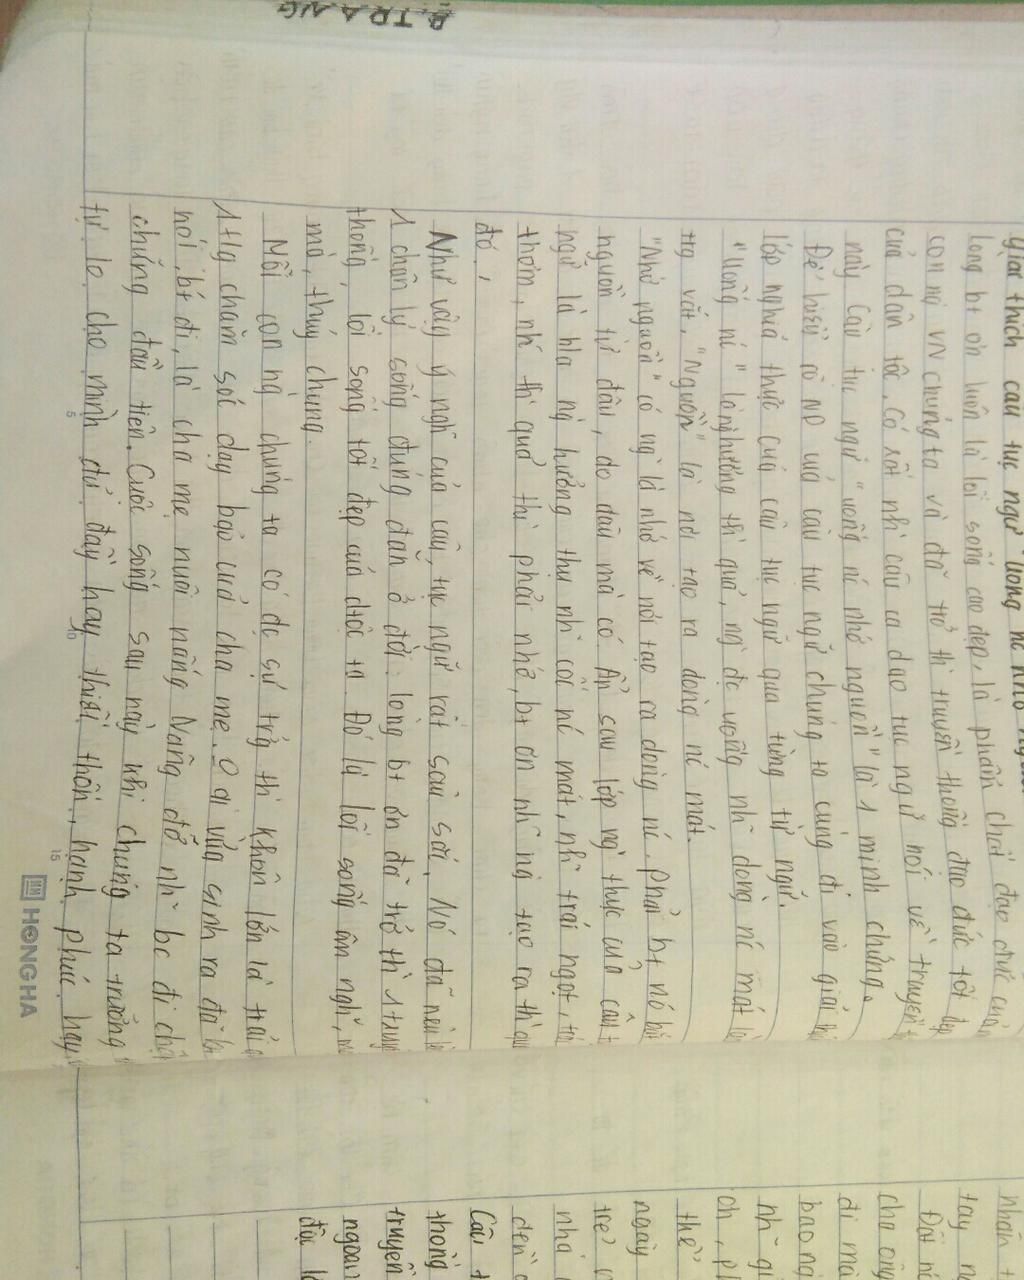 Giải thích câu tục ngữ "uống nc nhớ nguồn
Lòng bt ơn luôn là lối sống cao đẹp, là phẩm chất đạo đức của
con ng VN chúng ta và đã trở th truyền thống đạo đức tốt đẹp
của dân tộc. Có rất nh câu ca dao tục ngữ nói về truyền t
này câu tục ngữ "uống nc nhớ nguồn" là 1 minh chứng.
Để hiểu rõ ND của câu tục ngữ chúng ta cùng đi vào giải th
lớp nghĩa thực của câu tục ngữ qua từng từ ngữ.
"Uống nc" là hưởng th quả, ng đc uống nh dòng nc mát là
tg vắt. "Nguồn" là nơi tạo ra dòng nc mát.
"Nhớ nguồn" có ng là nhớ về nơi tạo ra dòng nc. Phải bt nó bắt
nguồn từ đâu, do đâu mà có Ẩn sau lớp ng thực của câu t
ngữ là hìa ng hưởng thụ nh cốc nc mát, nh trái ngọt, tr
thơm, nh th quả thì phải nhớ, bt ơn nh ng tạo ra th quả
đó,
Như vậy ý ngh của câu, tục ngữ rất sâu sắc. Nó đã nêu lê
1 chân lý sống đúng đắn ở đời: lòng bt ơn đã trở th 1 truyề
thống, lối sống tốt đẹp của dtộc ta Đó là lối sống ân nghĩ,
mà, thủy chung.
Mỗi con ng chúng ta có đc sự trg th khôn lớn là trải q
1 tg chăm sóc dạy bảo của cha mẹ. O ai vừa sinh ra đã bi
nói, bt đi, là cha mẹ nuôi nấng Nâng đỡ nh bc đi chậ
chững đầu tiên. Cuộc sống sau này khi chúng ta trưởng
tự lo cho mình đủ đầy hay thiếu thốn, hạnh phúc hay
B.TRANG
5
10
15
HONGHA
nhân t
tay n
Đất n
cha ông
đi mà
bao ng
nh gi
ơn, ph
thế
ngày
trẻ
nhà
đến
Câu t
thống
truyền
ngoan
độc l